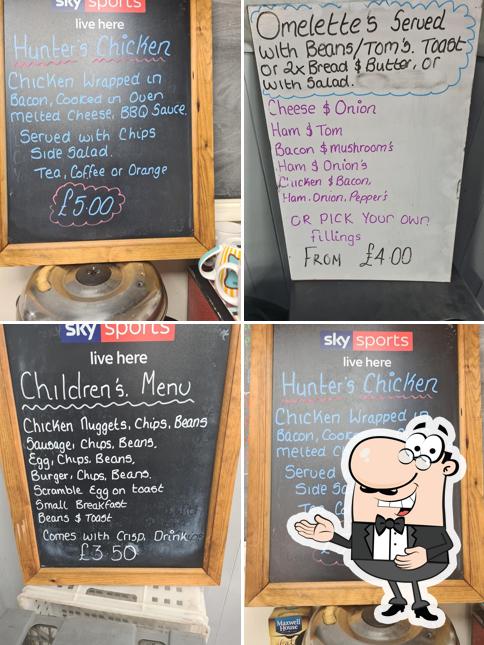 sky sports
live here
Hunter's Chicken
Chicken Wrapped in
Bacon, Cooked in Oven
melted Cheese, BBQ Sauce.
Served with Chips
Side Salad.
Tea, Coffee or Orange
£5.00
Omelette's Served
with Beans/Tom's. Toast
or 2x Bread $ Butter, or
with Salad.
Cheese $ Onion
Ham $ Tom
Bacon $ mushroom's
Ham $ Onion's
Chicken $ Bacon,
Ham. Onion, Pepper's
OR PICK YOUR OWN
fillings
FROM £4.00
sky sports
live here
Children's. Menu
Chicken Nuggets, Chips, Beans
Sausage, Chips, Beans,
Egg, Chips. Beans,
Burger, Chips, Beans.
Scramble Egg on toast
Small Breakfast
Beans $ Toast
Comes with Crisp, Drink
£3.50
sky sports
live here
Hunter's Chicken
Chicken Wrapped in
Bacon,
melted
Served
Side
MAXWELL HOUSE